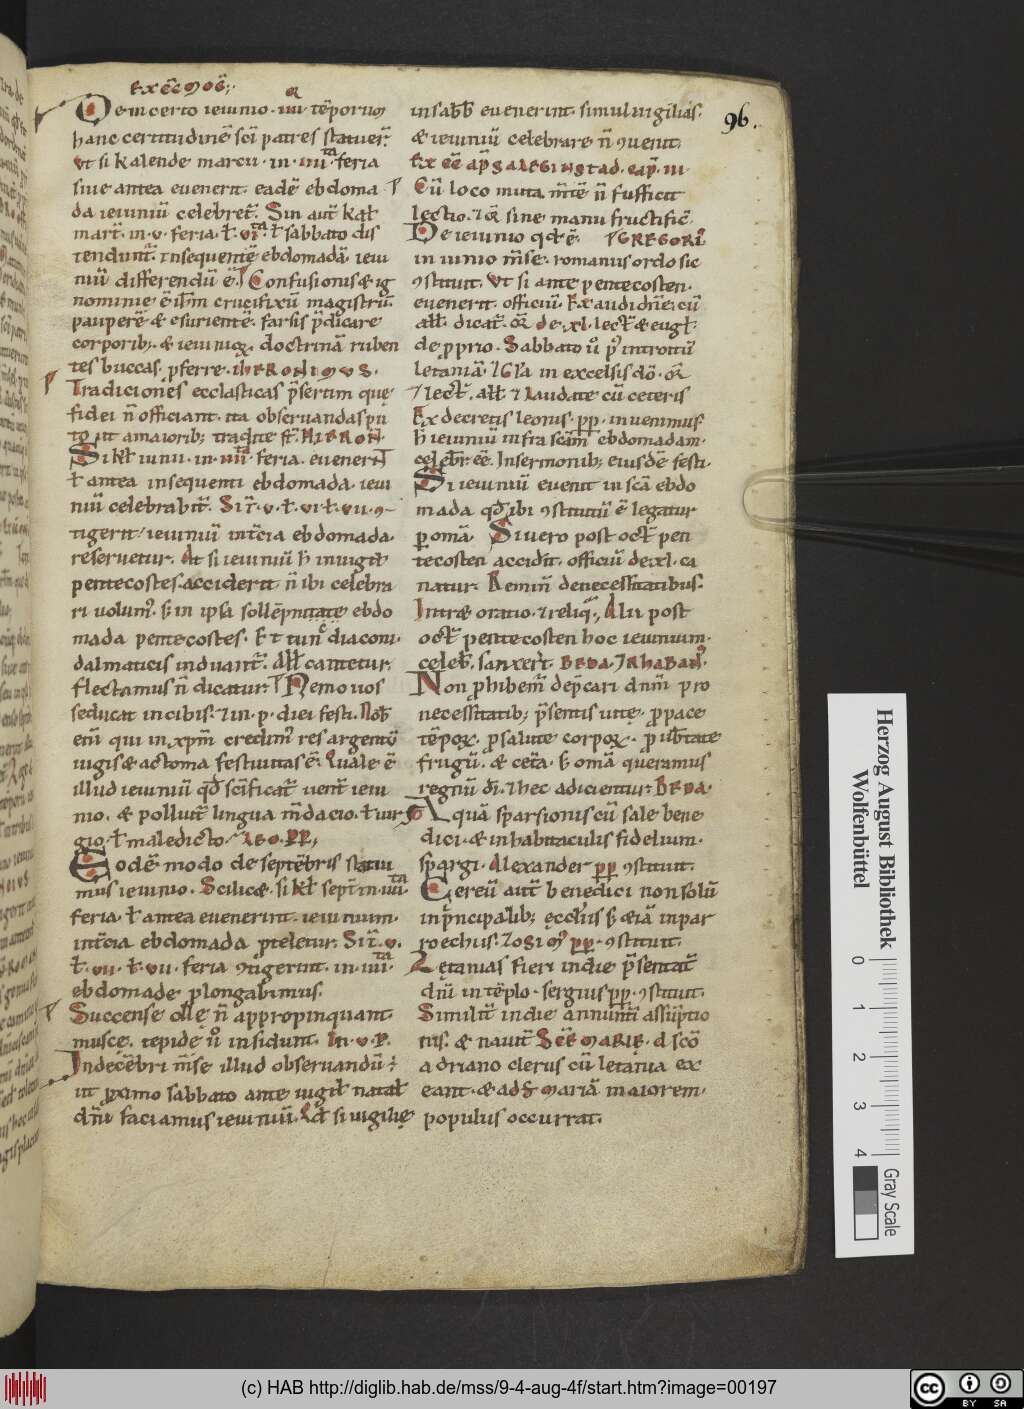 96.
De incerto ieiunio · iiii · tēporum
hanc certitudinē sc̄i patres
Vt si kalende marcii · in · iiii · feria
siue antea euenerit · eadē ebdoma
da ieiuniū celebret᷑. Sin aut̄ kał
mart̄ · in · v · feria · ł · vi · ł sabbato dis
tendunt᷑. Insequentē ebdomadā ieiu
niū differendū ē. Confusionis & ig
nominie ē crucifixū magistrū
pauperē & esurientē. farsis p̄dicare
corporib; & ieiuniorꝝ doctrinā ruben
tes buccas. pferre. IHERONIMVS.
Tradiciones ecclasticas p̄sertim quę
fidei n̄ officiant. ita obseruandas
amaiorib; HIERON̄.
Si kł iunii · in · iiii · feria. euenerīt
ł antea insequenti ebdomada · ieiu
niū celebrabit᷑. Si r̄ · v · ł · vi · ł · vii · 9
tigerit / ieiuniū int̄cia ebdomada.
reseruetur. At si ieiuniū h̄ inuigił
pentecostes. acciderit n̄ ibi celebra
ri volum᷒. s; in ipsa sollēpnitate ebdo
mada pentecostes. Et tunc diaconi.
dalmaticis induant᷑. Ałł cantetur.
flectamus n̄ dicatur. Nemo uos
seducat in cibis. ⁊ in · p · diei festi. Nob̄
enī qui in xp̄m credim᷒ res argentū
uigis & ac toma festiuitas ē. Quale ē
illud ieiuniū qd̄ sc̄ificat᷑ uent̄ ieiu
nio. & polluit᷑ lingua m̄dacio. ł iur
gio. ł maledicto. LEO. PP.
Eodē modo de septēbris statui
mus ieiunio. Scilicæ. si kł sept̄ in · iiii
feria. ł antea euenerint. ieiunium.
int̄cia ebdomada Si r̄ · v.
ł · vii · ł · vii · feria 9tigerint. in · iiii
ebdomade plongabimus.
Succense ollę n̄ appropinquant
muscę. tepide u᷒ insidunt. In · v · P.
Indecēbri m̄se illud obseruandū ⁊
ut ꝓximo sabbato ante uigił natał
dn̄i faciamus ieiuniū. Qd̄ si uigilię
in sabb̄ euenerint. simul uigilias.
& ieiuniū celebrare n̄ 9uenit.
Ex cc̄ ap̄ SALEGINSTAD. cap̄. iii
Cū loco muta. m̄tē n̄ sufficit
lectio. ⁊ or̄ sine manu fructific̄.
De ieiunio qd̄ ē. ⁊ GREGORI᷒
in iunio m̄se. romanus ordo sic
9stituit. Vt si ante pentecosten.
euenerit. officiū. Exaudi dn̄e. cū
ałł. dicat᷑. or̄ de xl. lect̄ & eugł.
de pprio. Sabbato u᷒ p᷒ introitū
letaniā. ⁊ Gl̄a in excelsis dō. or̄
⁊ lect̄. ałł ⁊ laudate cū ceteris
Ex decretis leonis · pp · inuenimus.
h̄ ieiuniū infra sc̄am ebdomadam.
celebr̄ ēē. In sermonib; eiusdē festi.
Si ieiuniū euenit in sc̄a ebdo
mada qd̄ ibi 9stitutū ē legatur
p omā. Si uero post oct̄ pen
tecosten accidit. officiū de xl. ca
natur. Remin̄ de necessitatibus.
Intræ oratio. ⁊ reliq̄. Alii post
oct̄ pentecosten hoc ieiunium.
celeb̄. sanxert̄. BEDA. ⁊ RHABAN᷒.
Non phibem᷒ dep̄cari dn̄m pro
necessitatib; p̄sentis uite. p pace
tēpoꝝ. p salute corpoꝝ. p ub̄tate
frugū. & cet̄a. s; omā queramus
regnū dī. ⁊ hec adicientur. BEDA.
Aquā sparsionis cū sale bene
dici. & in habitaculis fidelium.
spargi. Alexander pp 9stituit.
Cereū aut̄ benedici non solū
in p̄ncipalib; ęcclīis s; etiā in par
roechiis. ⁊ osim᷒ pp. 9stituit.
Lętanias fieri in die p̄sentat᷑
dn̄i in tēplo. sergius pp. 9stituit.
Similit̄ in die annunt̄i assūptio
nis. & natiut̄ SC̄Ē MARIĘ. d sc̄o
adriano clerus cū letania ex
eant. & ad s̄ mariā maiorem.
populus occurrat.
Herzog August Bibliothek
Wolfenbüttel
0 1 2 3 4
Gray Scale
(c) HAB http://diglib.hab.de/mss/9-4-aug-4f/start.htm?image=00197
cc BY SA